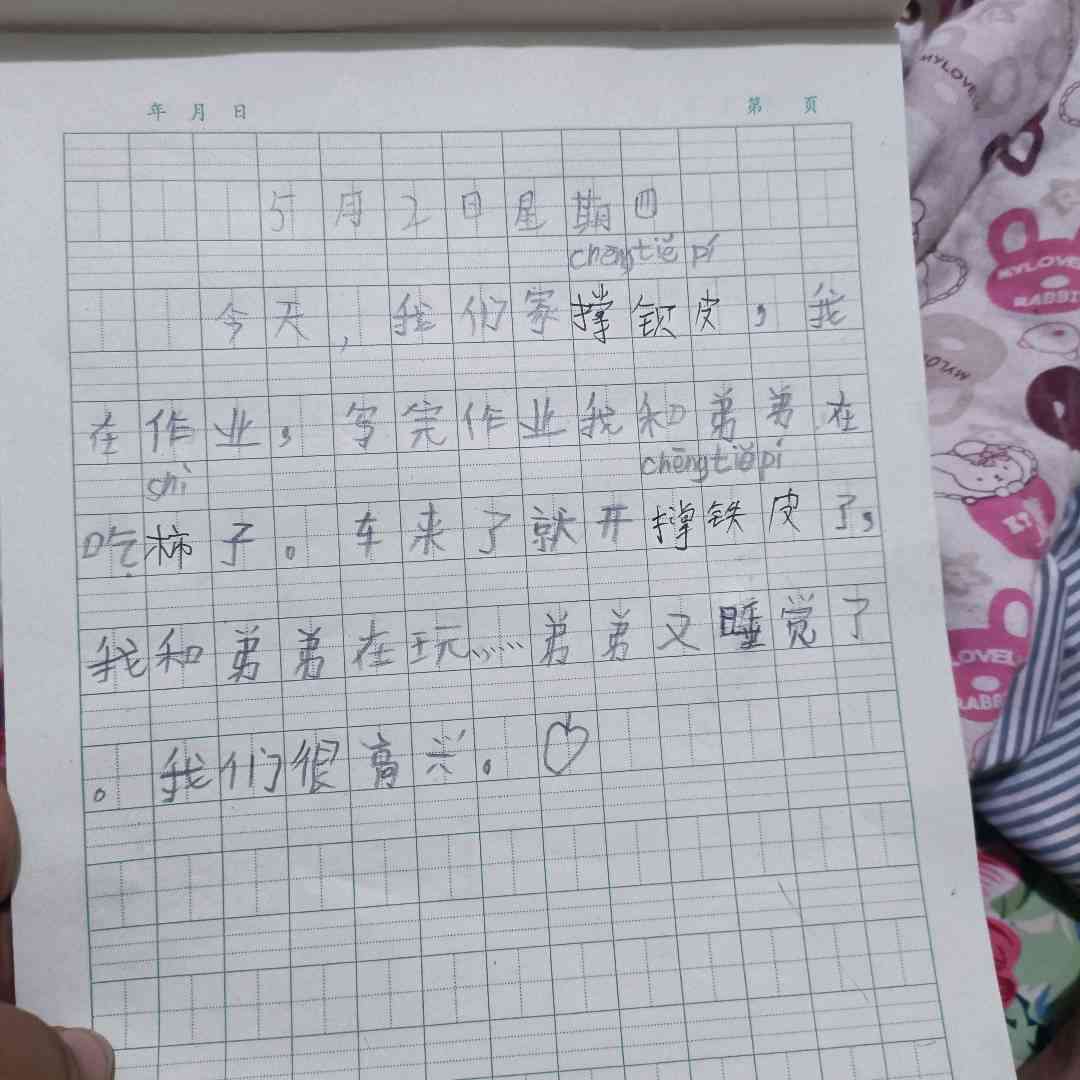 年 月 日 第 页
5月2日星期四
chēng tiě pí
今天,我们家撑铁皮,我
在作业,写完作业我和弟弟在
shì chēng tiě pí
吃柿子。车来了就开撑铁皮了,
我和弟弟在玩……弟弟又睡觉了
。我们很高兴。
MYLOVE
MYLOVE
RABBI
MYLOV
LOVEL
RABB